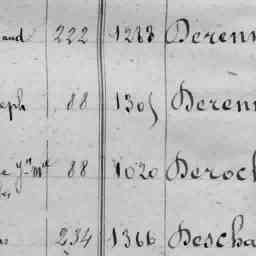 and 222 1288 Derenn
eph 88 1305 Deren
e 88 1020 Deroc
234 1366 Descha